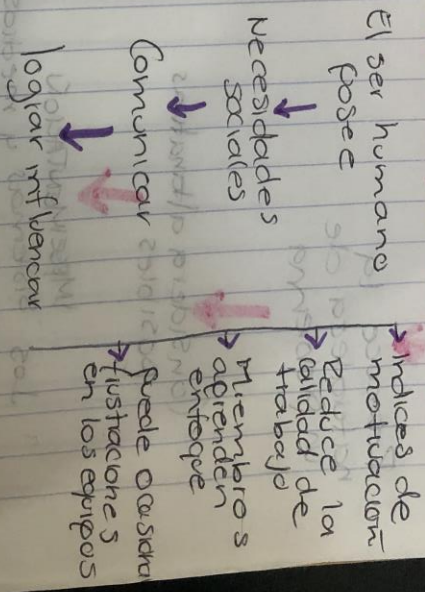 El ser humano
posee
Necesidades
sociales
Comunicar
lograr influenciar
Indices de
motivación
Reduce la
calidad de
trabajo
Miembros
aprenden
enfoque
Puede ocasiona
frustraciones
en los equipos